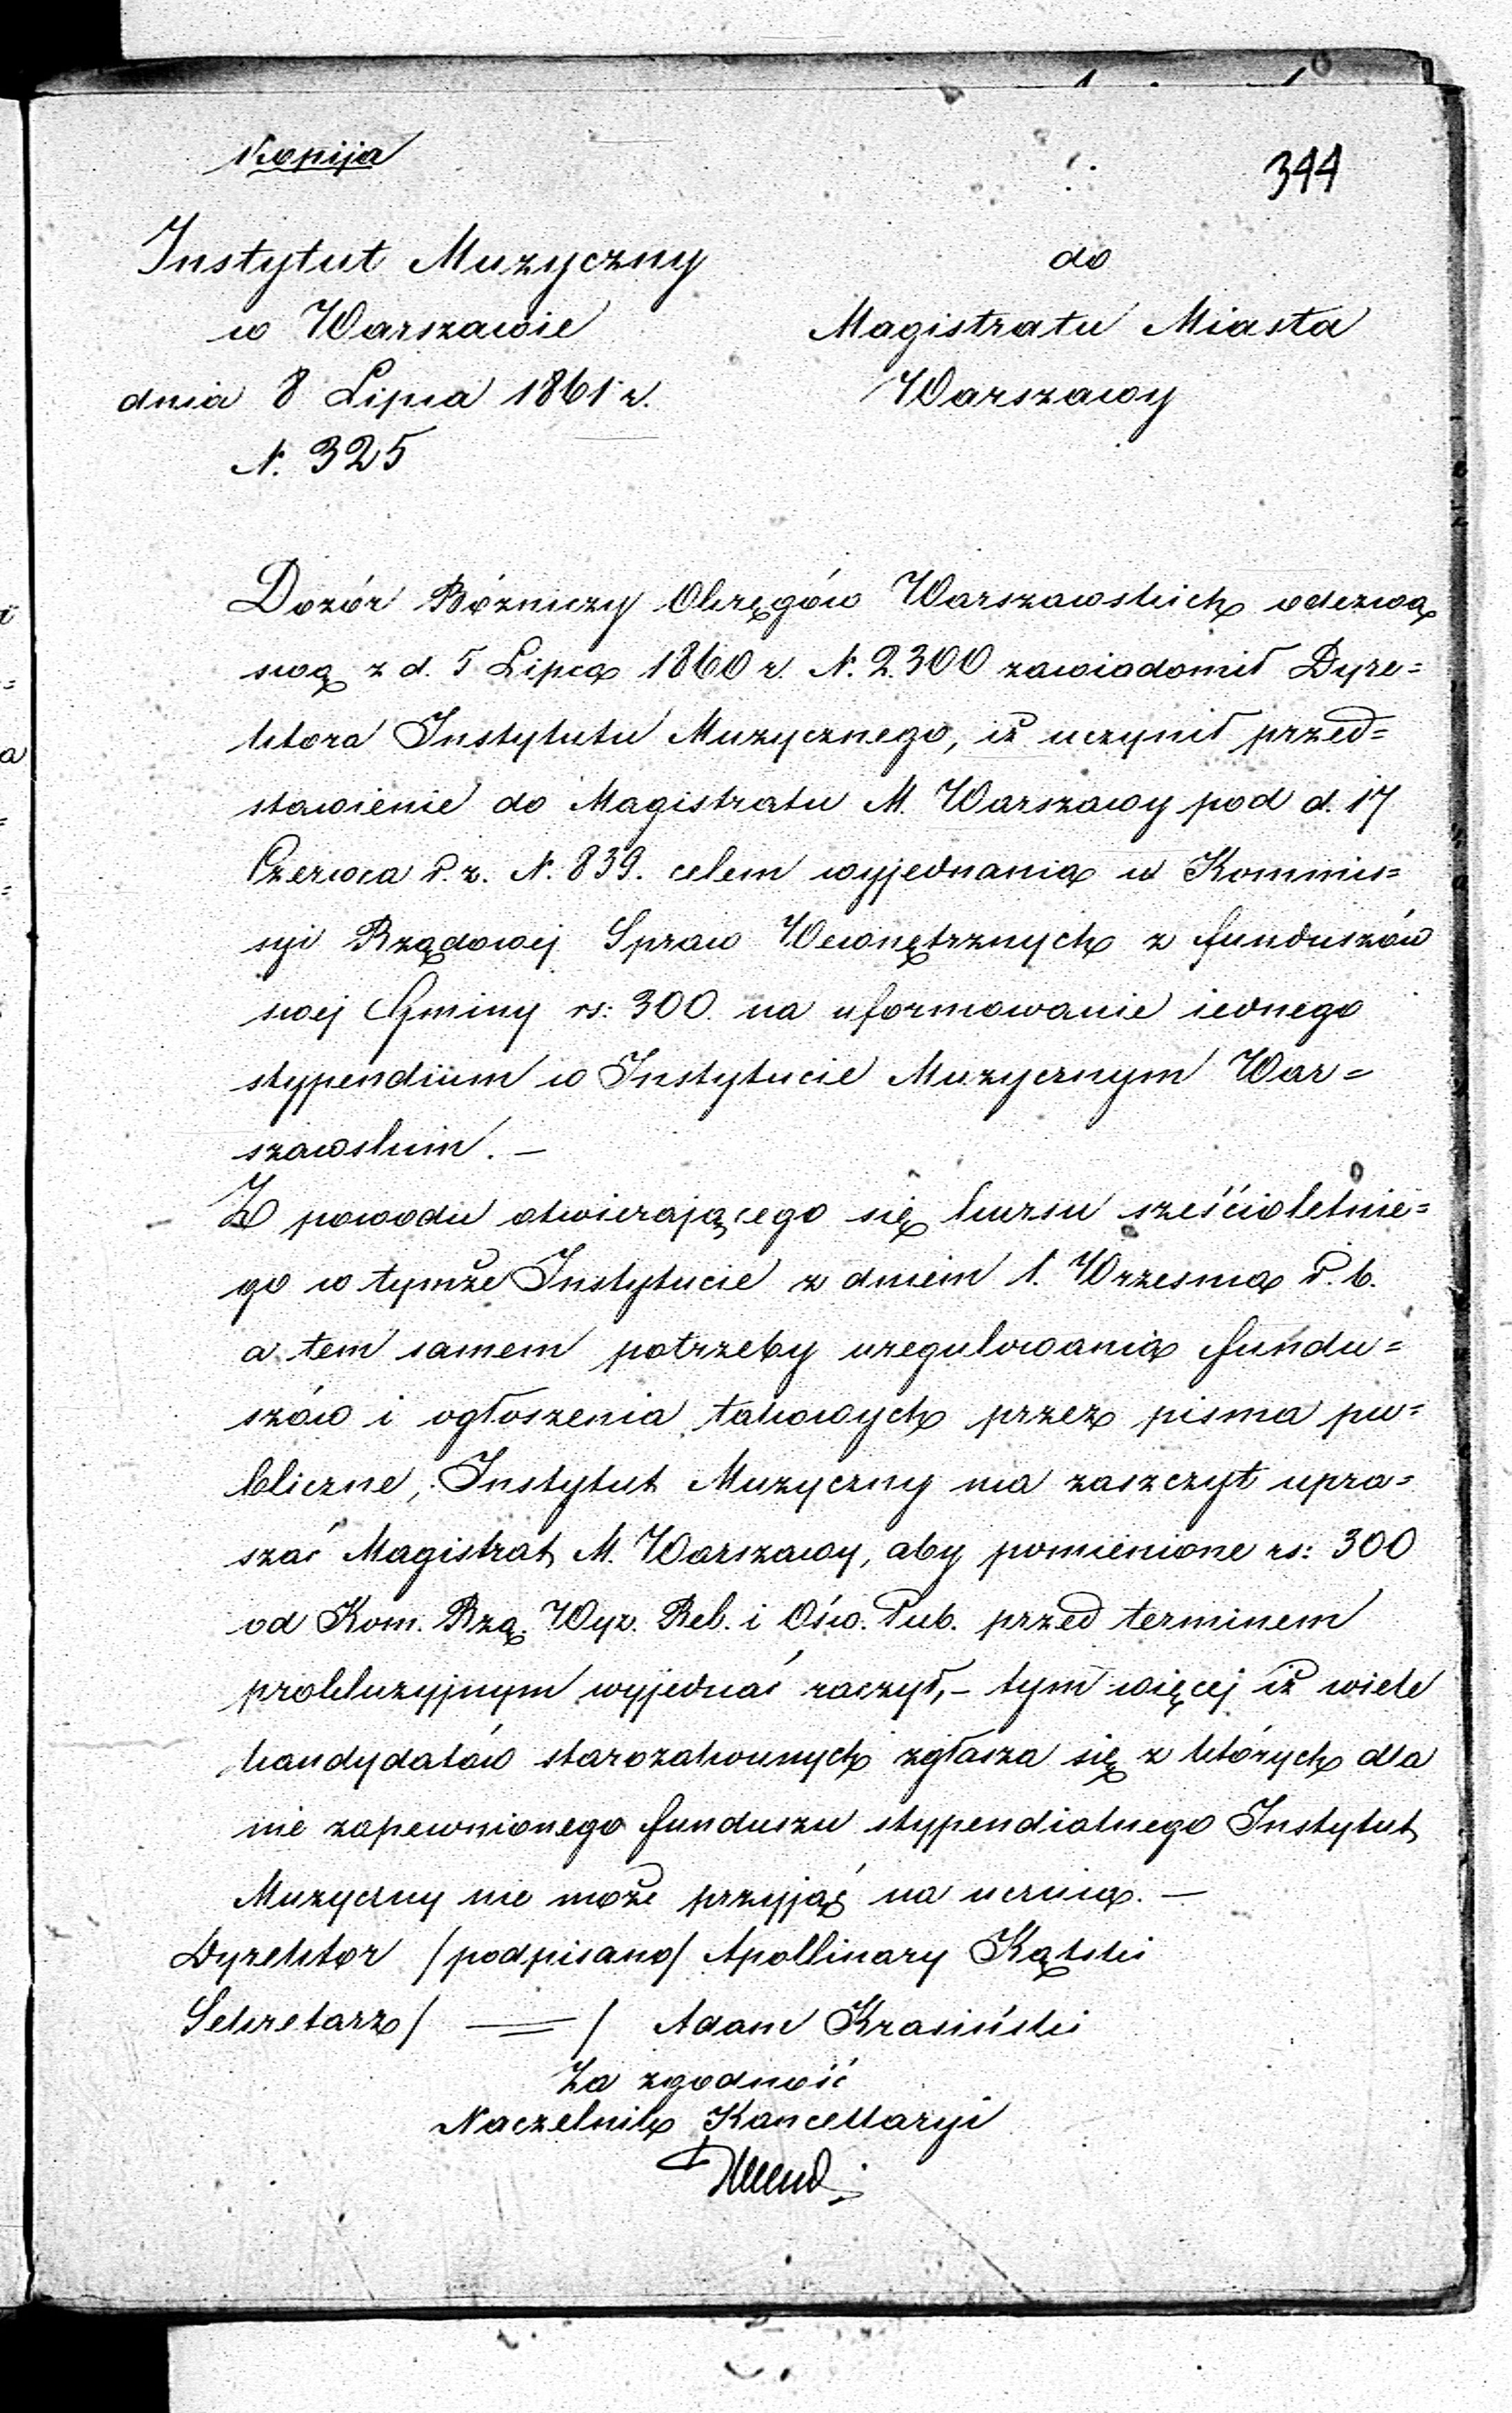 Kopija
344
Instytut Muzyczny
w Warszawie
dnia 8 Lipca 1861 r.
N. 325
do
Magistratu Miasta
Warszawy
Dozór Bóżniczy Okręgów Warszawskich odezwą
swą z d. 5 Lipca 1860 r. N. 2300 zawiadomił Dyre=
ktora Instytutu Muzycznego, iż uczynił przed=
stawienie do Magistratu M. Warszawy pod d. 17
Czerwca t. r. N. 839. celem wyjednania w Kommis=
syi Rządowej Spraw Wewnętrznych z funduszów
swej Gminy rs: 300. na uformowanie iednego
stypendium w Instytucie Muzycznym War=
szawskim. —
Z powodu otwierającego się kursu sześcioletnie=
go w tymże Instytucie z dniem 1. Wrzesnia t. b.
a tem samem potrzeby uregulowania fundu=
szów i ogłoszenia takowych przez pisma pu=
bliczne, Instytut Muzyczny ma zaszczyt upra=
szać Magistrat M. Warszawy, aby pomienione rs: 300
od Kom. Rzą. Wyz. Rel. i Ośw. Pub. przed terminem
prekluzyjnym wyjednać raczył, – tym więcej iż wiele
kandydatów starozakonnych zgłasza się z których dla
nie zapewnionego funduszu stypendialnego Instytut
Muzyczny nie może przyjąć na ucznia. —
Dyrektor /podpisano/ Apollinary Kątski
Sekretarz / — = / Adam Krasiński
Za zgodność
Naczelnik Kancellaryi